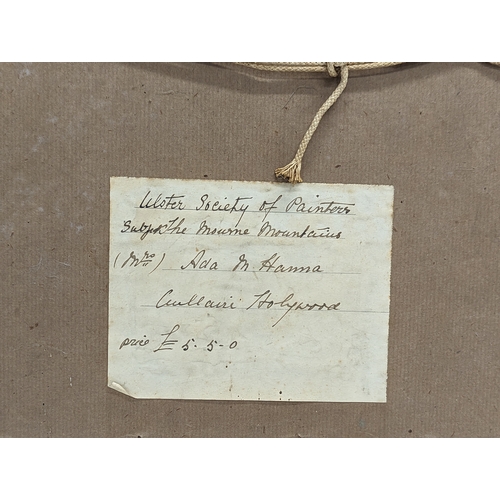 Ulster Society of Painters
Subject The Mourne Mountains
(Mrs) Ada M. Hanna
Holywood
price £5-5-0